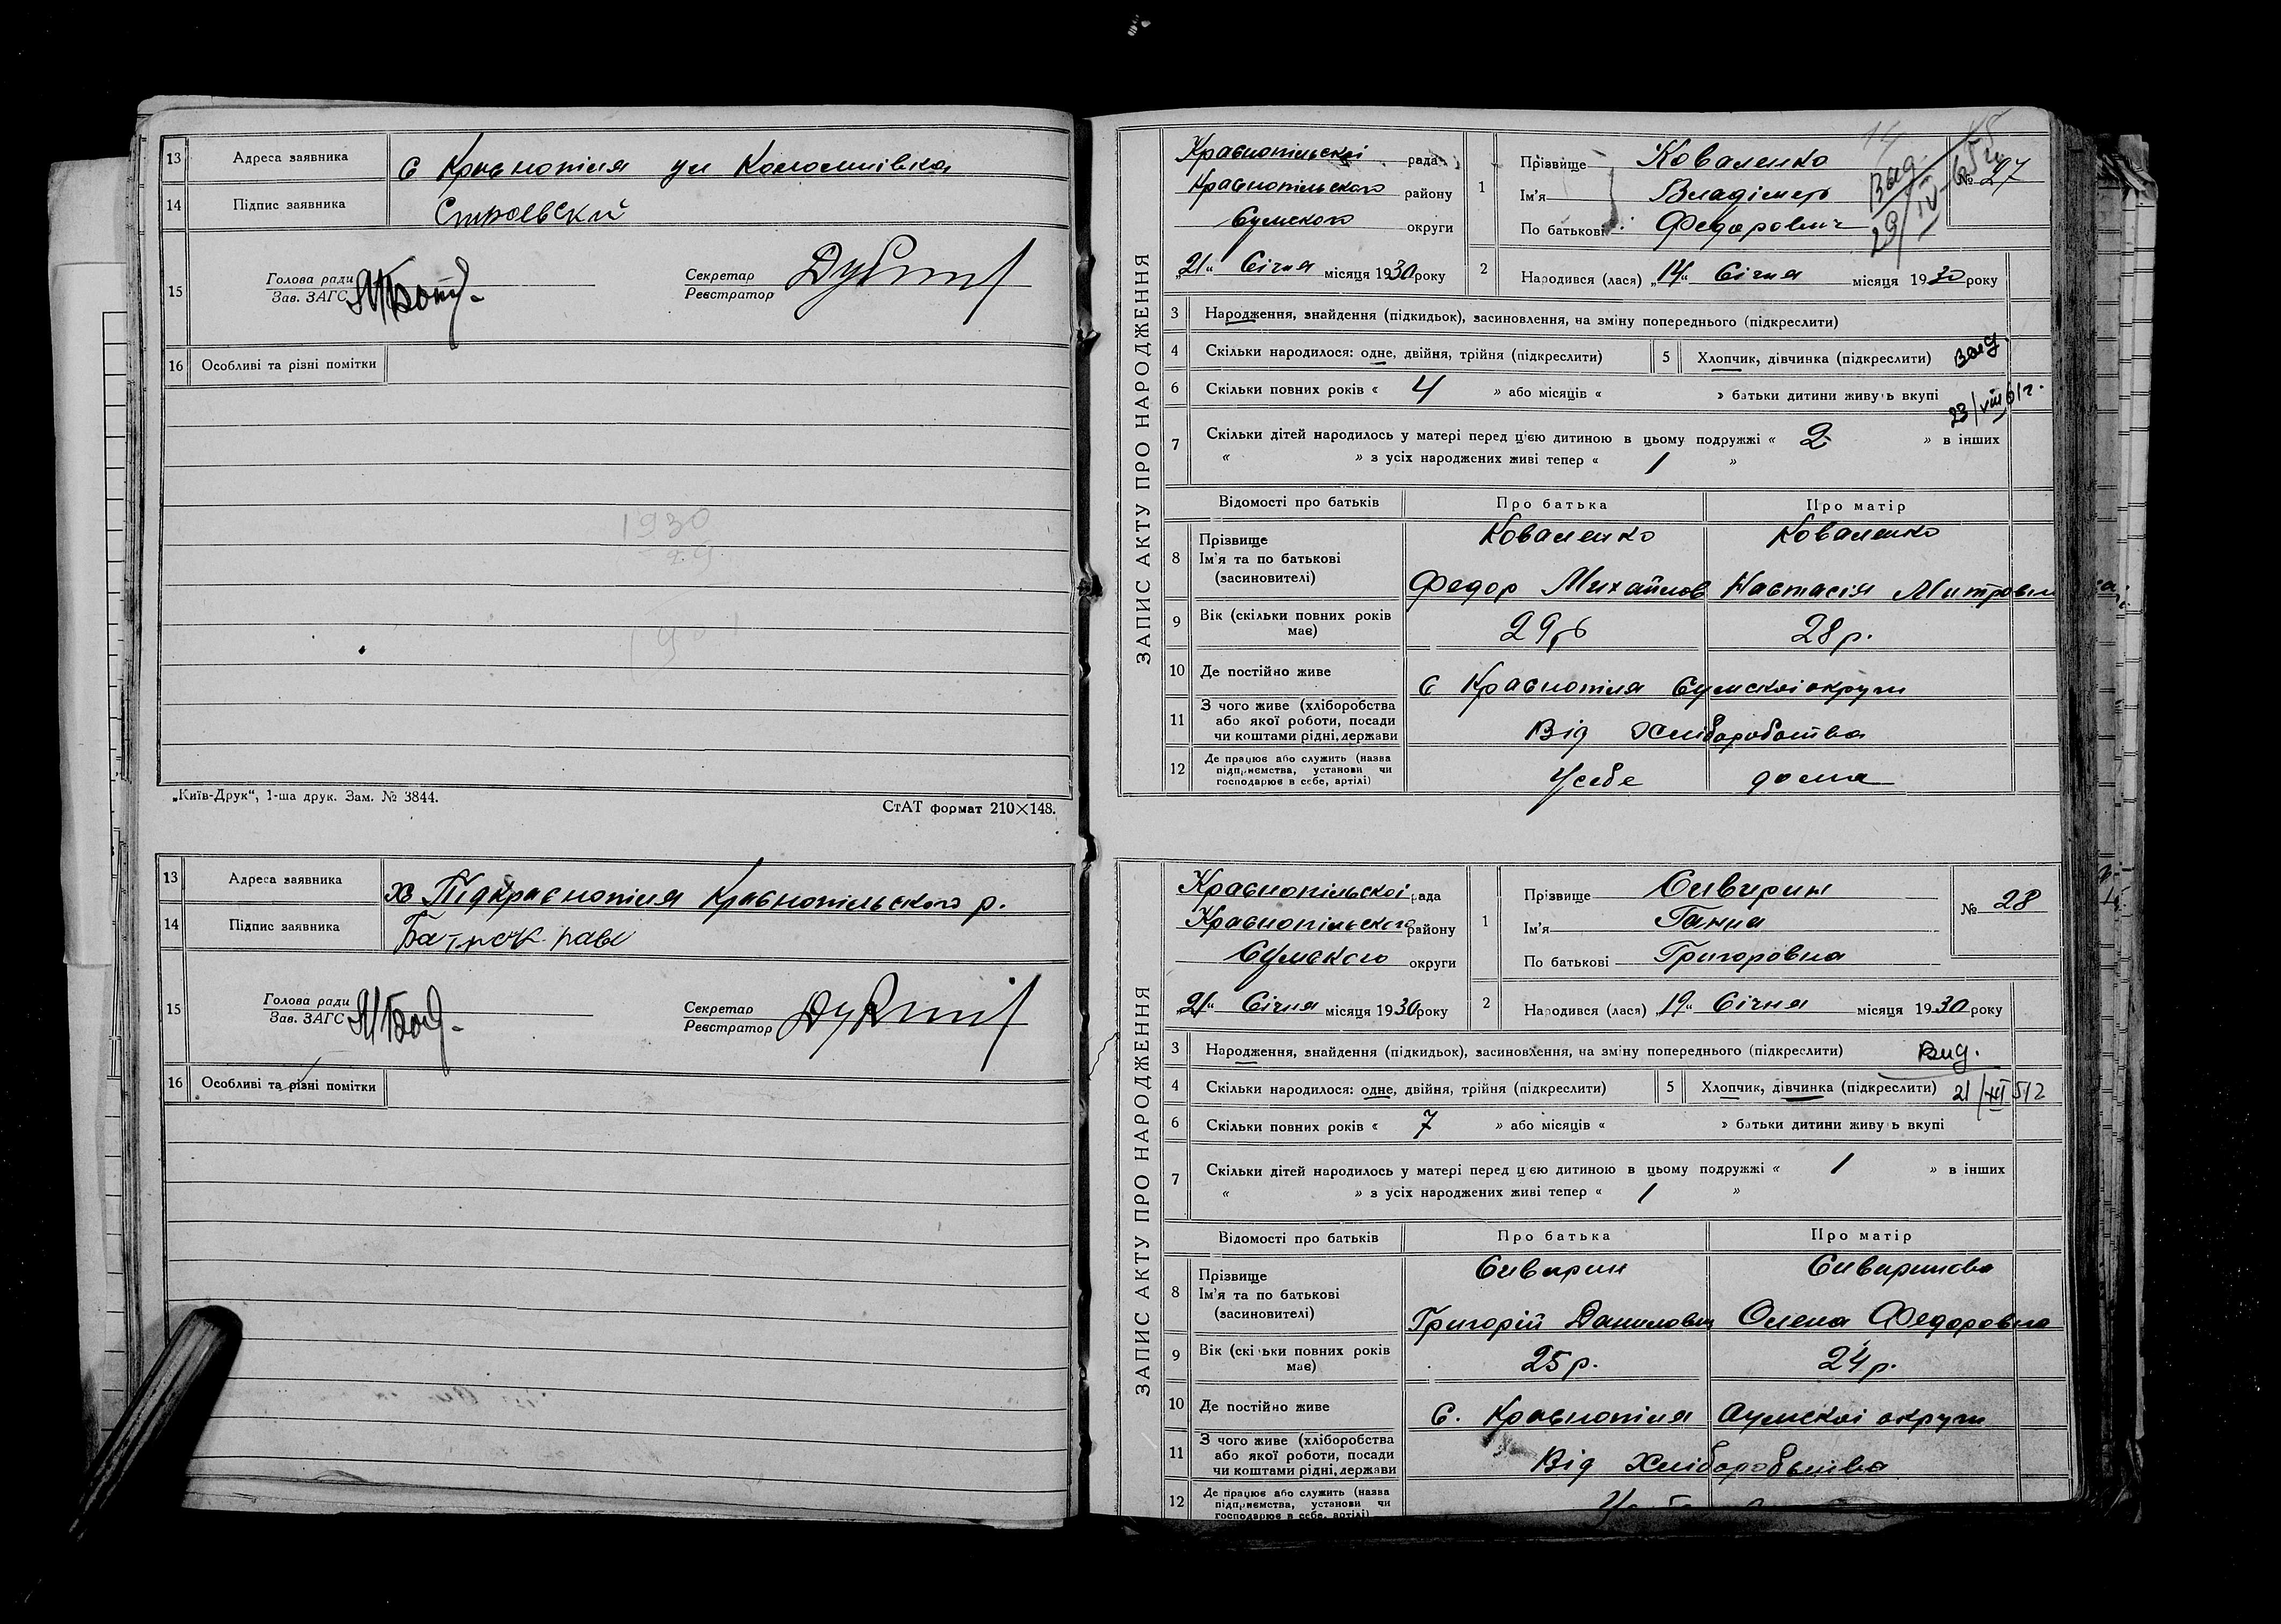 13 Адреса заявника с Краснопілля ул Коломиївка
14 Підпис заявника Строевский
15 Голова ради
Зав. ЗАГС
Секретар
Реєстратор
16 Особливі та різні помітки
1930
„Київ-Друк“, 1-ша друк. Зам. № 3844. СтАТ формат 210×148.
13 Адреса заявника х Підкраснопілля Краснопільского р.
14 Підпис заявника
15 Голова ради
Зав. ЗАГС
Секретар
Реєстратор
16 Особливі та різні помітки
ЗАПИС АКТУ ПРО НАРОДЖЕННЯ
Краснопільскої рада
Краснопільского району
Сумского округи
„21“ Січня місяця 1930 року
1 Прізвище Коваленко
Ім'я Владімер
По батькові Федорович
№ 27
Выд. 29/IV-65
2 Народився (лася) „14“ Січня місяця 1930 року
3 Народження, знайдення (підкидьок), засиновлення, на зміну попереднього (підкреслити)
4 Скільки народилося: одне, двійня, трійня (підкреслити) 5 Хлопчик, дівчинка (підкреслити) Выд.
6 Скільки повних років « 4 » або місяців « » батьки дитини живуть вкупі 23/VIII 61г.
7 Скільки дітей народилось у матері перед цією дитиною в цьому подружжі « 2 » в інших
« » з усіх народжених живі тепер « 1 »
Відомості про батьків Про батька Про матір
8 Прізвище Коваленко Коваленко
Ім'я та по батькові
(засиновителі) Федор Михайлов Настасія Митровн
9 Вік (скільки повних років має) 29р 28р.
10 Де постійно живе с Краснопілля Сумскої округи
11 З чого живе (хліборобства
або якої роботи, посади
чи коштами рідні, держави Від Хліборобства
12 Де працює або служить (назва
підприємства, установи чи
господарює в себе, артілі) У себе дома
ЗАПИС АКТУ ПРО НАРОДЖЕННЯ
Краснопільскої рада
Краснопільского району
Сумского округи
„21“ Січня місяця 1930 року
1 Прізвище Сиверин
Ім'я Ганна
По батькові Григоровна
№ 28
2 Народився (лася) „19“ Січня місяця 1930 року
3 Народження, знайдення (підкидьок), засиновлення, на зміну попереднього (підкреслити) Выд.
4 Скільки народилося: одне, двійня, трійня (підкреслити) 5 Хлопчик, дівчинка (підкреслити) 21/XII 51г
6 Скільки повних років « 7 » або місяців « » батьки дитини живуть вкупі
7 Скільки дітей народилось у матері перед цією дитиною в цьому подружжі « 1 » в інших
« » з усіх народжених живі тепер « 1 »
Відомості про батьків Про батька Про матір
8 Прізвище Сиверин Сиверинова
Ім'я та по батькові
(засиновителі) Григорій Данилович Олена Федоровна
9 Вік (скільки повних років має) 25р. 24р.
10 Де постійно живе с. Краснопілля Сумскої округи
11 З чого живе (хліборобства
або якої роботи, посади
чи коштами рідні, держави Від Хліборобства
12 Де працює або служить (назва
підприємства, установи чи
господарює в себе, артілі)